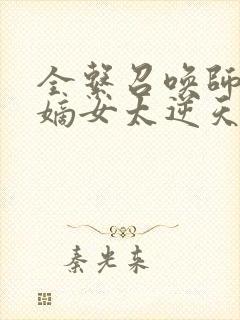 全系召唤師
嫡女太逆天
秦光来